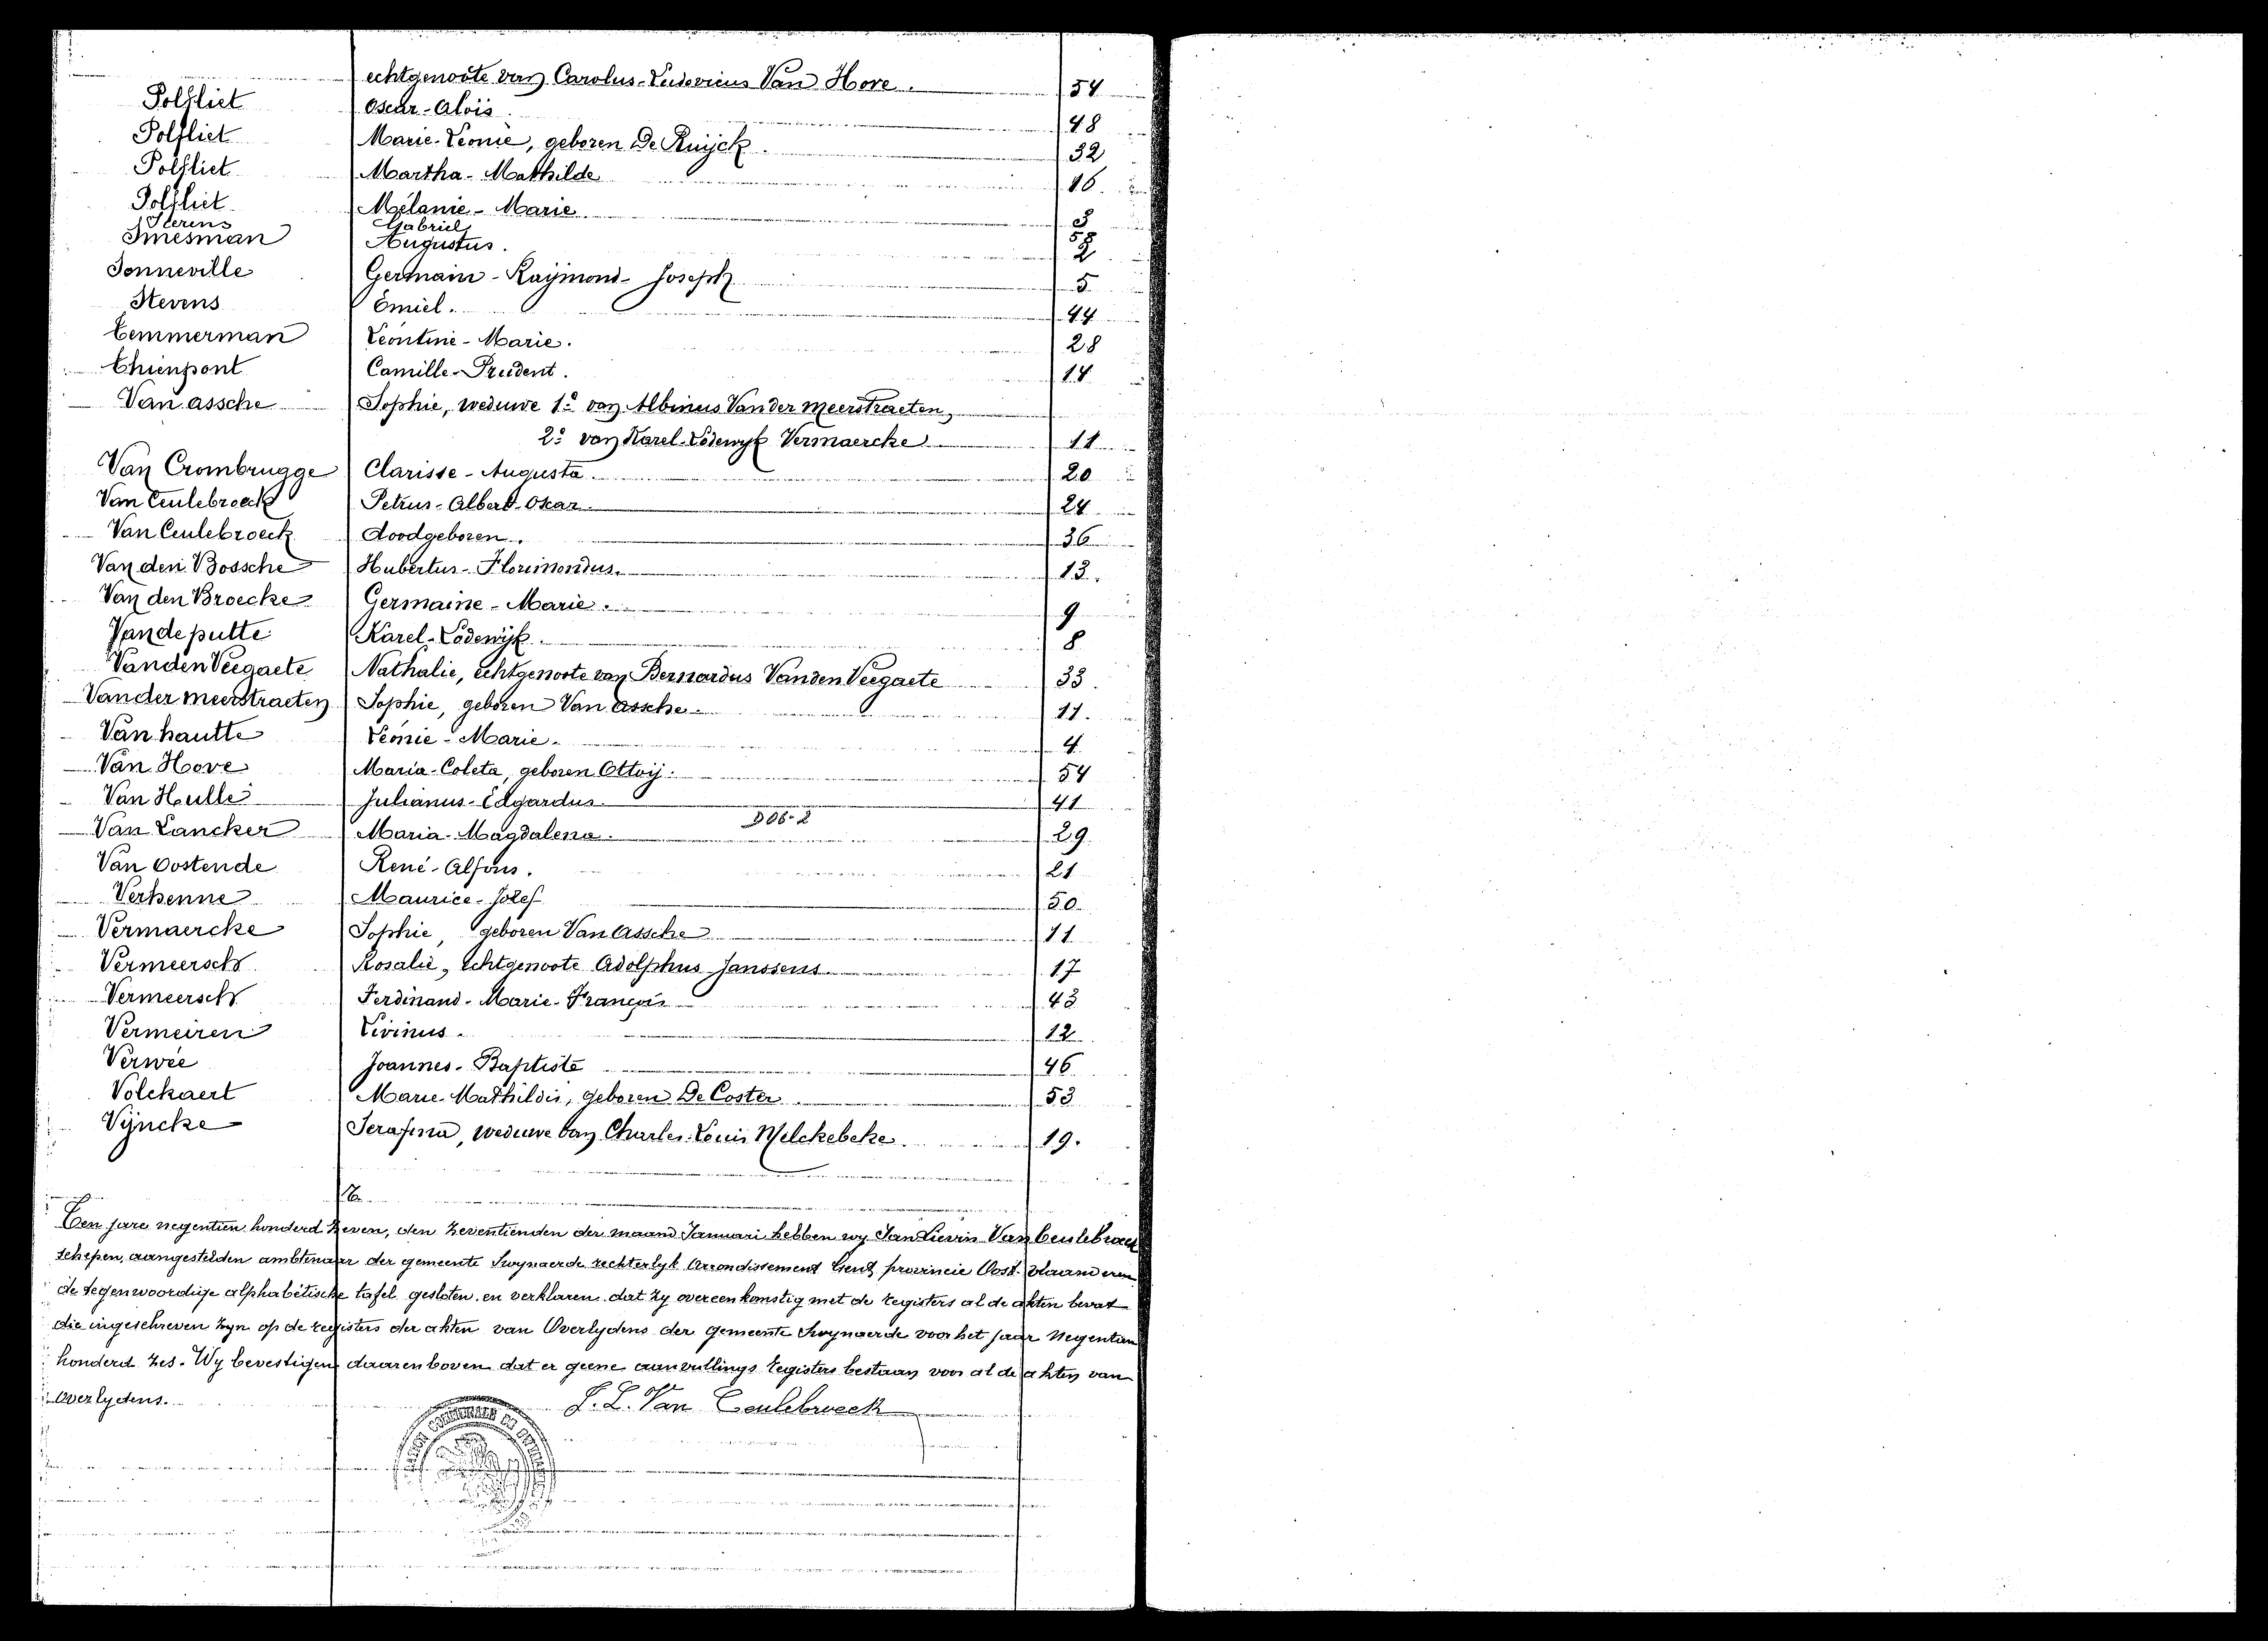 echtgenoote van Carolus-Ludovicus Van Hove. 54
Polfliet Oscar-Alois. 48
Polfliet Marie-Leonie, geboren De Ruijck. 32
Polfliet Martha-Mathilde 16.
Polfliet Mélanie-Marie 3
Sterens Gabriel
Smesman Augustus. 2
Sonneville Germain-Raymond-Joseph 5
Stevens Emiel. 44
Temmerman Léontine-Marie. 28
Thienpont Camille-Prudent. 14
Van assche Sophie, weduwe 1.º van Albinus Van der meerstraeten,
2.º van Karel-Lodewyk Vermaercke 11
Van Crombrugge Clarisse-Augusta. 20
Van Ceulebroeck Petrus-Albert-Oscar. 24
Van Ceulebroeck doodgeboren. 36
Van den Bossche Hubertus-Florimondus. 13.
Van den Broecke Germaine-Marie. 9
Van de putte Karel-Lodewijk. 8
Van den Veegaete Nathalie, echtgenoote van Bernardus Van den Veegaete 33.
Van der meerstraeten Sophie, geboren Van assche. 11.
Van hautte Léonie-Marie. 4
Van Hove Maria-Coleta, geboren Ottoij. 54
Van Hulle Julianus-Edgardus 41
Van Lancker Maria-Magdalena. 306-2 29.
Van Oostende René-Alfons. 21
Verhenne Maurice-Jozef 50.
Vermaercke Sophie, geboren Van Assche 11
Vermeersch Rosalie, echtgenoote Adolphus Janssens 17
Vermeersch Ferdinand-Marie-François 43
Vermeiren Livinus. 12
Verwée Joannes-Baptiste 46
Volckaert Marie-Mathildis, geboren De Coster. 53
Vyncke Serafina, weduwe van Charles-Louis Melckebeke. 19.
Den jare negentien honderd zeven, den zeventienden der maand Januari hebben wy Jan Lievin Van Ceulebroeck
schepen, aangestelden ambtenaar der gemeente Swynaerde rechterlyk Arrondissement Gent provincie Oost-Vlaanderen
de tegenwoordige alphabetische tafel gesloten, en verklaren dat zy overeenkomstig met de registers al de akten bevat
die ingeschreven zyn op de registers der akten van Overlydens der gemeente Swynaerde voor het jaar Negentien
honderd zes. Wy bevestigen daarenboven dat er geene aanvullings registers bestaan voor al de akten van
Overlydens.
J. L. Van Ceulebroeck